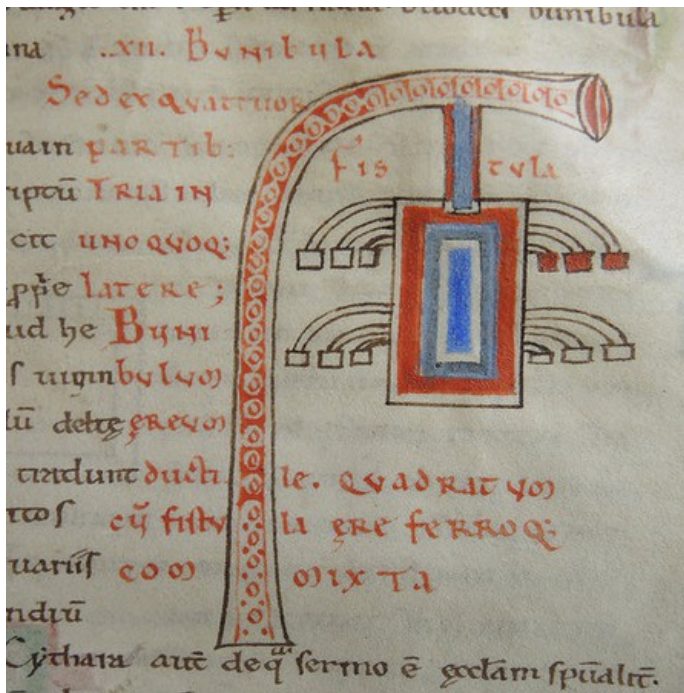 bunibula
ana ..xii. Bunibula
Sed ex quattuor
uam partib:
fis tula
riptū tria in
etc unoquoq;
pp̄e latere;
ud he Buni
s uigin bulum
lū deltę ęreum
tradunt ducti le. quadratum
ttos cū fistu la ęre ferroq;
uariis com mixta
ndiū
Cythara aut̄ de q̄ sermo ē ęcclam spūalit̄.